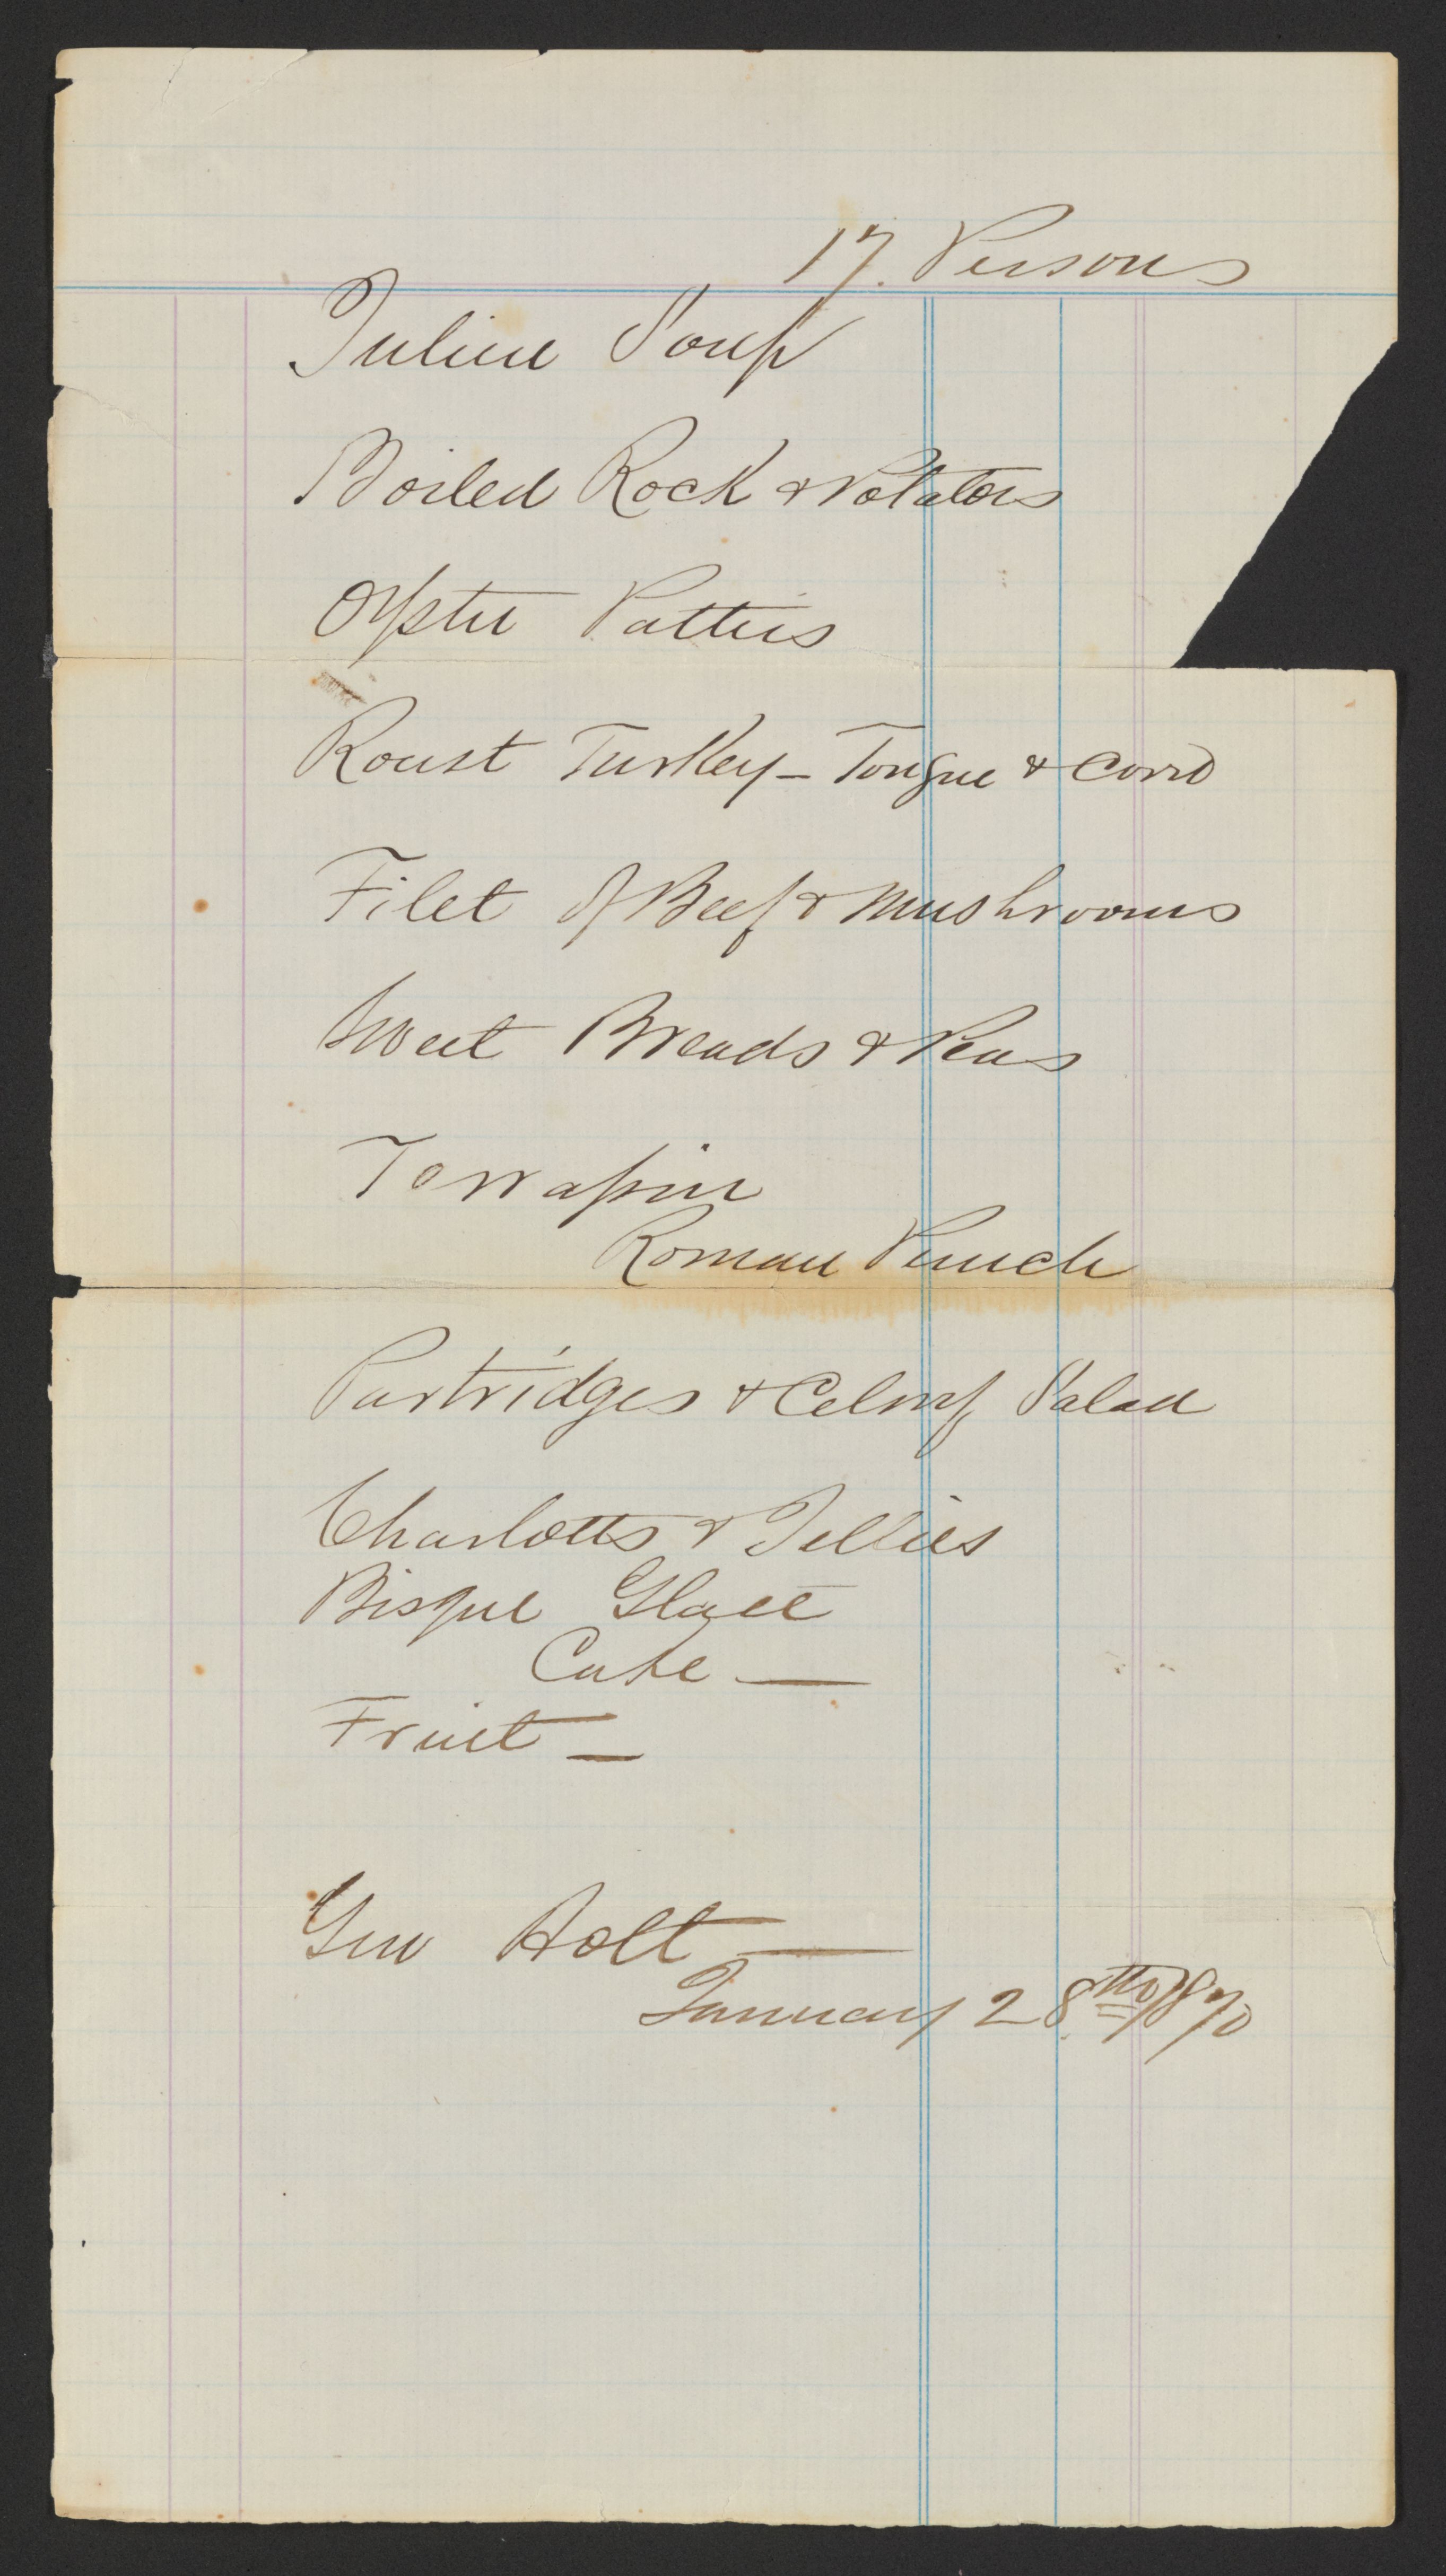 17. Persons
Julien Soup
Boiled Rock & Potatoes
Oyster Patties
Roast Turkey - Tongue & Corn
Filet of Beef & Mushrooms
Sweet Breads & Peas
Terrapin
Roman Punch
Partridges & Celery Salad
Charlotts & Jellies
Bisque Glacé
Cake —
Fruit —
Geo Holt —
January 28th 1870